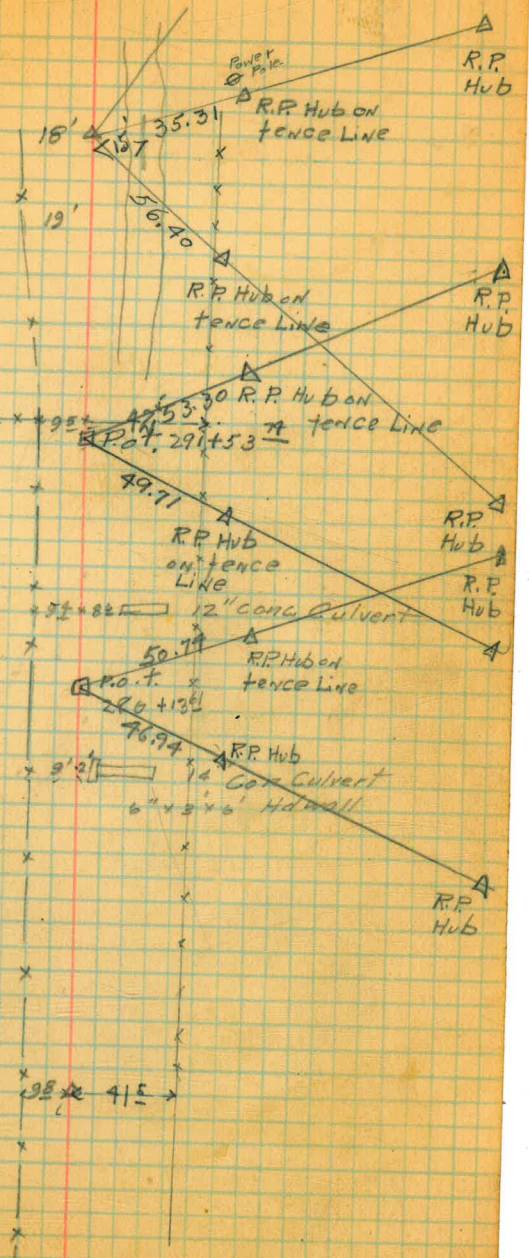 Power
Pole
R.P.
Hub
35.31
R.P. Hub on
fence Line
18'
157
19'
56.40
R.P. Hub on
fence Line
R.P.
Hub
53.30
R.P. Hub on
fence Line
P.O.T. 291+53
49.71
R.P. Hub
on fence
Line
R.P.
Hub
R.P.
Hub
12" Conc Culvert
50.79
R.P. Hub on
fence Line
P.O.T.
46.94
R.P. Hub
14'
Con Culvert
6" x 3' x 6' Hdwall
R.P.
Hub
98
41 5